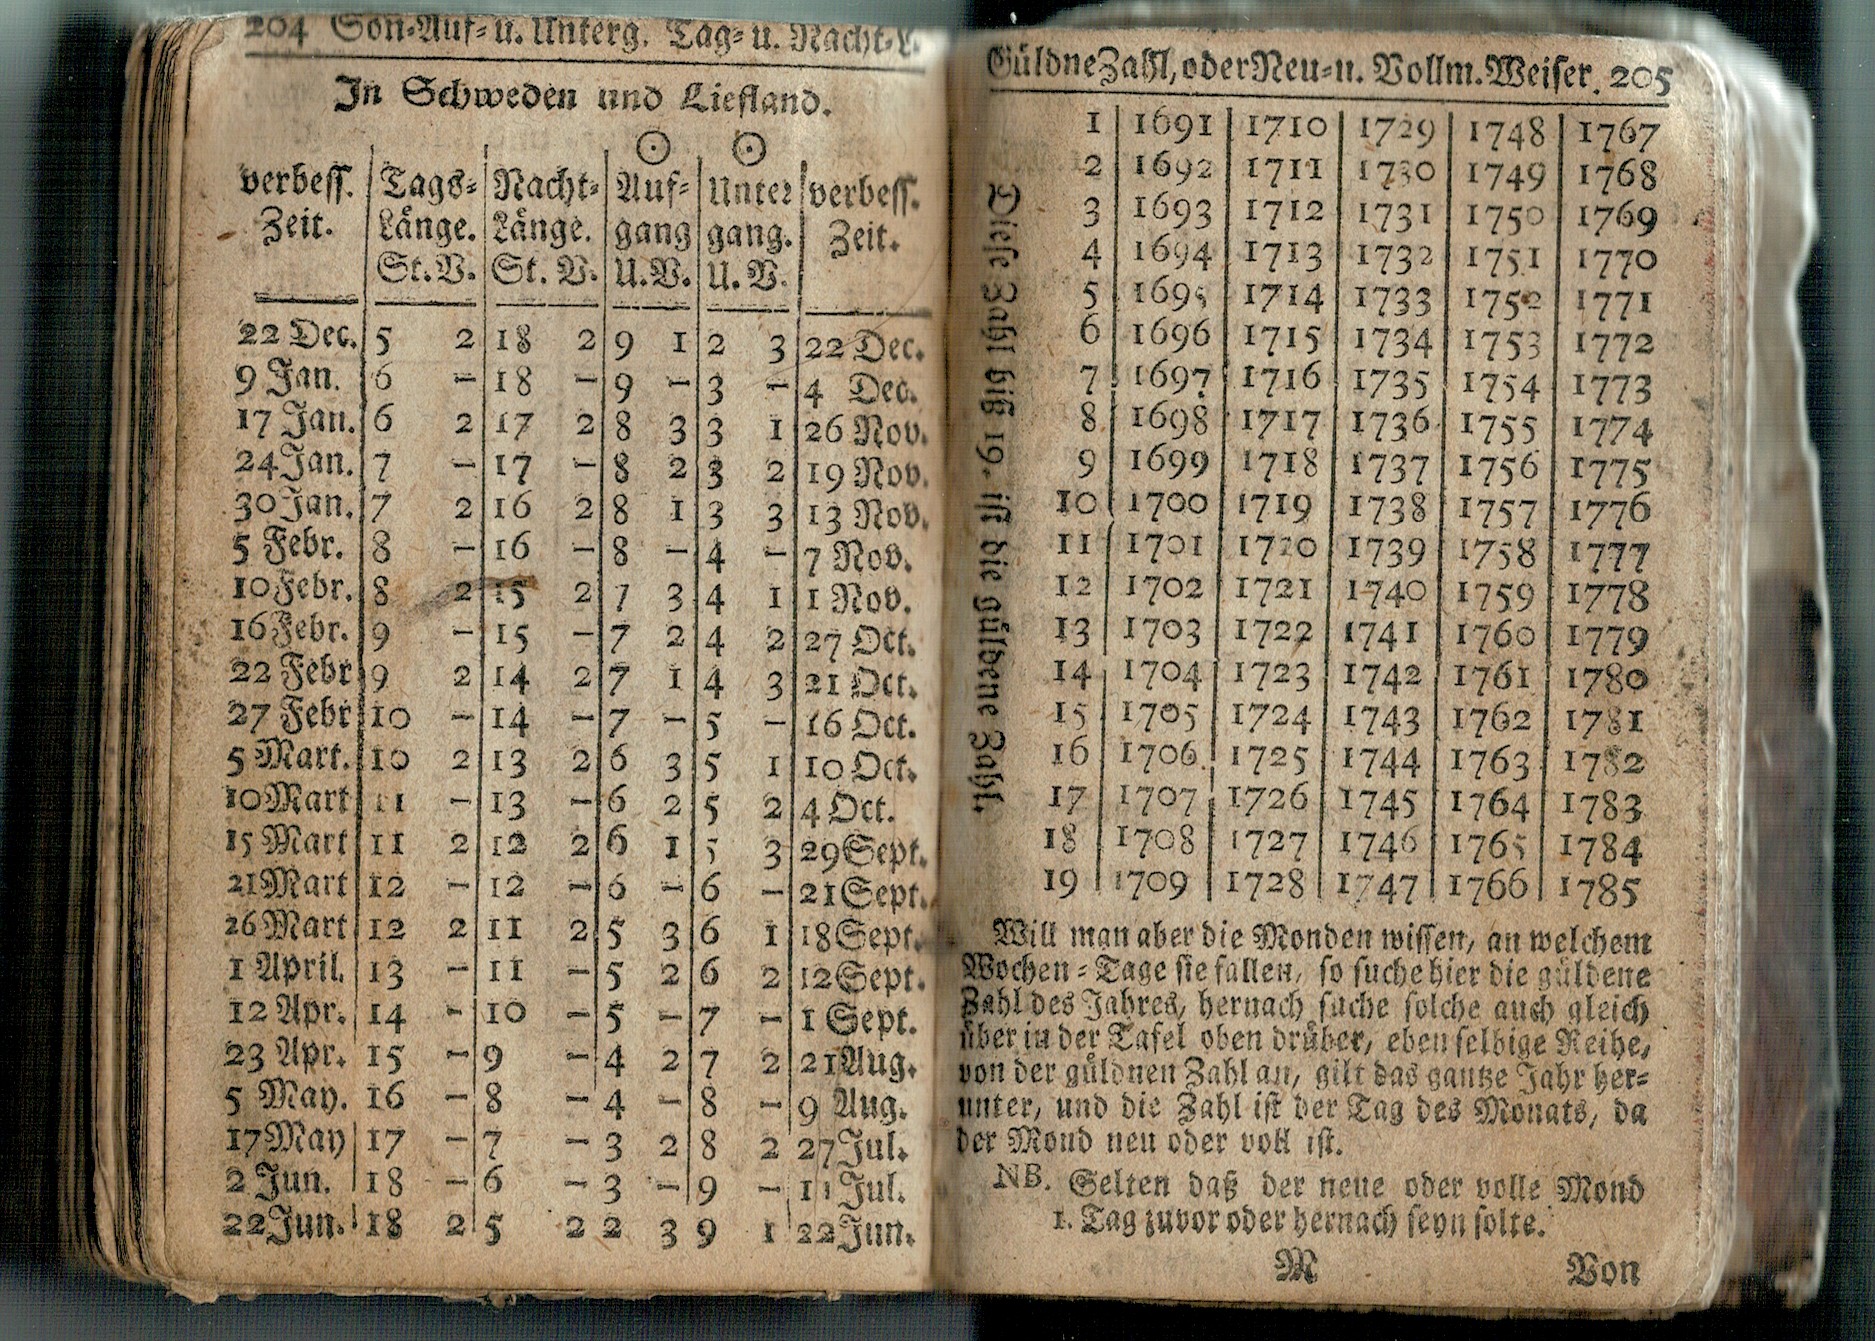 204 Son-Auf- u. Unterg. Tag- u. Nacht-L.
In Schweden und Liefland.
☉ ☉
verbess. Tags- Nacht- Auf- Unter verbess.
Zeit. Länge. Länge. gang gang. Zeit.
St. V. St. V. U. V. U. V.
22 Dec. 5 2 18 2 9 1 2 3 22 Dec.
9 Jan. 6 – 18 – 9 – 3 – 4 Dec.
17 Jan. 6 2 17 2 8 3 3 1 26 Nov.
24 Jan. 7 – 17 – 8 2 3 2 19 Nov.
30 Jan. 7 2 16 2 8 1 3 3 13 Nov.
5 Febr. 8 – 16 – 8 – 4 – 7 Nov.
10 Febr. 8 2 15 2 7 3 4 1 1 Nov.
16 Febr. 9 – 15 – 7 2 4 2 27 Oct.
22 Febr 9 2 14 2 7 1 4 3 21 Oct.
27 Febr 10 – 14 – 7 – 5 – 16 Oct.
5 Mart. 10 2 13 2 6 3 5 1 10 Oct.
10 Mart 11 – 13 – 6 2 5 2 4 Oct.
15 Mart 11 2 12 2 6 1 5 3 29 Sept.
21 Mart 12 – 12 – 6 – 6 – 21 Sept.
26 Mart 12 2 11 2 5 3 6 1 18 Sept.
1 April. 13 – 11 – 5 2 6 2 12 Sept.
12 Apr. 14 – 10 – 5 – 7 – 1 Sept.
23 Apr. 15 – 9 – 4 2 7 2 21 Aug.
5 May. 16 – 8 – 4 – 8 – 9 Aug.
17 May 17 – 7 – 3 2 8 2 27 Jul.
2 Jun. 18 – 6 – 3 – 9 – 11 Jul.
22 Jun. 18 2 5 2 2 3 9 1 22 Jun.
Güldne Zahl, oder Neu- u. Vollm. Weiser. 205
Diese Zahl biß 19. ist die güldene Zahl.
1 1691 1710 1729 1748 1767
2 1692 1711 1730 1749 1768
3 1693 1712 1731 1750 1769
4 1694 1713 1732 1751 1770
5 1695 1714 1733 1752 1771
6 1696 1715 1734 1753 1772
7 1697 1716 1735 1754 1773
8 1698 1717 1736 1755 1774
9 1699 1718 1737 1756 1775
10 1700 1719 1738 1757 1776
11 1701 1720 1739 1758 1777
12 1702 1721 1740 1759 1778
13 1703 1722 1741 1760 1779
14 1704 1723 1742 1761 1780
15 1705 1724 1743 1762 1781
16 1706 1725 1744 1763 1782
17 1707 1726 1745 1764 1783
18 1708 1727 1746 1765 1784
19 1709 1728 1747 1766 1785
Will man aber die Monden wissen, an welchem
Wochen-Tage sie fallen, so suche hier die güldene
Zahl des Jahres, hernach suche solche auch gleich
über in der Tafel oben drüber, eben selbige Reihe,
von der güldnen Zahl an, gilt das gantze Jahr her-
unter, und die Zahl ist der Tag des Monats, da
der Mond neu oder voll ist.
NB. Selten daß der neue oder volle Mond
1. Tag zuvor oder hernach seyn solte.
M Von